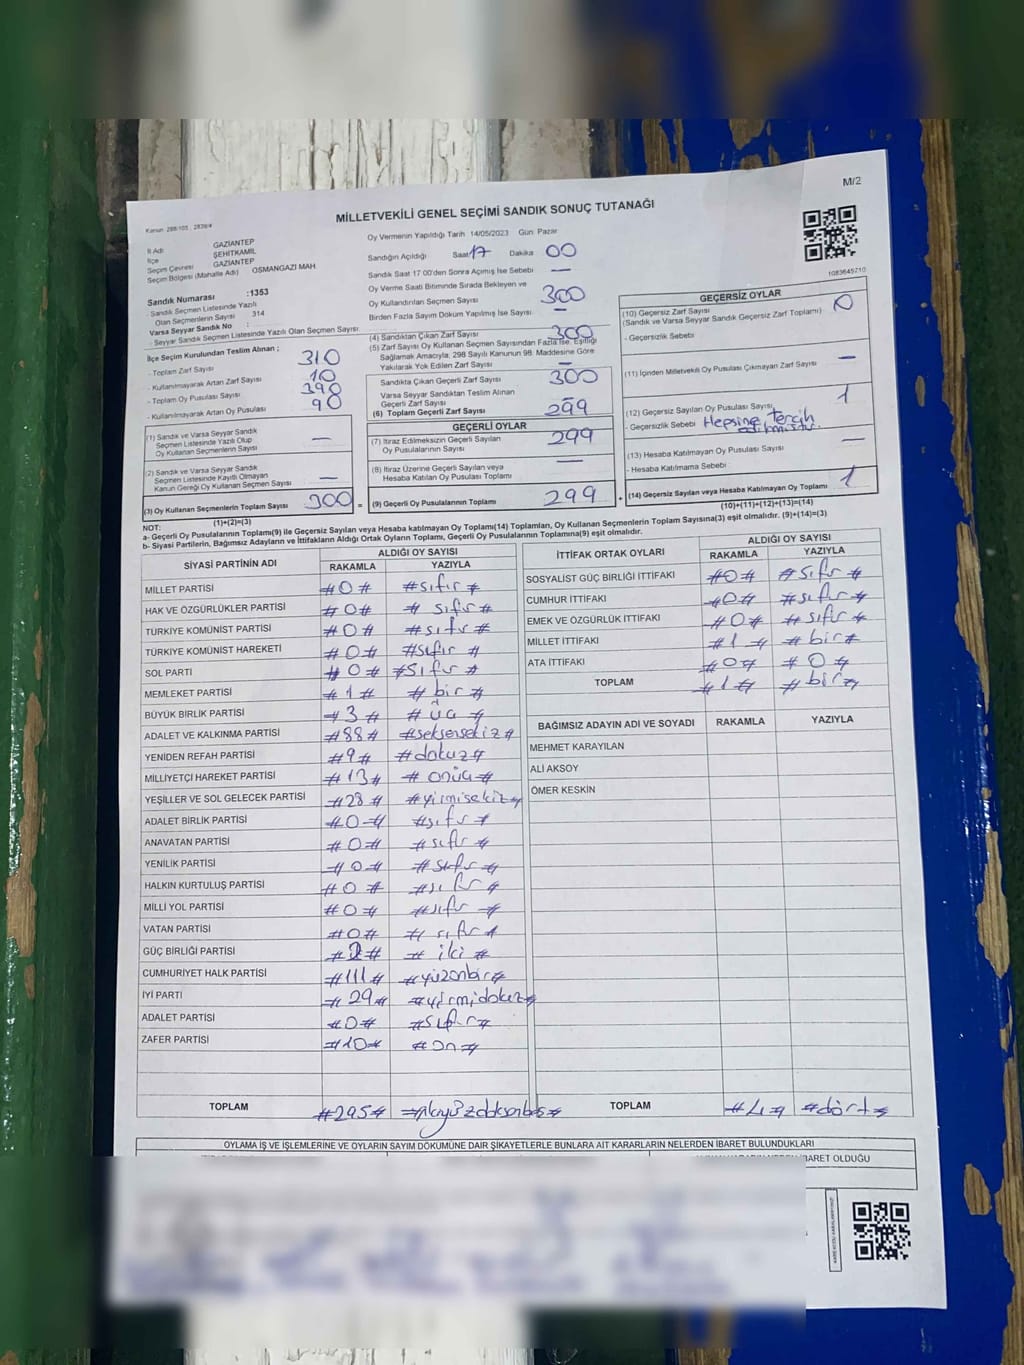 M/2
MİLLETVEKİLİ GENEL SEÇİMİ SANDIK SONUÇ TUTANAĞI
İl Adı GAZİANTEP
İlçe ŞEHİTKAMİL
Seçim Çevresi GAZİANTEP
Seçim Bölgesi (Mahalle Adı) OSMANGAZİ MAH.
Sandık Numarası :1353
- Sandık Seçmen Listesinde Yazılı
Olan Seçmenlerin Sayısı 314
Varsa Seyyar Sandık No :
- Seyyar Sandık Seçmen Listesinde Yazılı Olan Seçmen Sayısı:
Oy Vermenin Yapıldığı Tarih 14/05/2023 Gün: Pazar
Sandığın Açıldığı Saat 17 Dakika 00
Sandık Saat 17 00'den Sonra Açımış İse Sebebi —
Oy Verme Saati Bitiminde Sırada Bekleyen ve
Oy Kullandırılan Seçmen Sayısı 300
Birden Fazla Sayım Döküm Yapılmış İse Sayısı —
1083645710
İlçe Seçim Kurulundan Teslim Alınan ;
- Toplam Zarf Sayısı 310
- Kullanılmayarak Artan Zarf Sayısı 10
- Toplam Oy Pusulası Sayısı 390
- Kullanılmayarak Artan Oy Pusulası 90
(1) Sandık ve Varsa Seyyar Sandık
Seçmen Listesinde Yazılı Olup
Oy Kullanan Seçmenlerin Sayısı —
(2) Sandık ve Varsa Seyyar Sandık
Seçmen Listesinde Kayıtlı Olmayan
Kanun Gereği Oy Kullanan Seçmen Sayısı —
(3) Oy Kullanan Seçmenlerin Toplam Sayısı 300
(1)+(2)=(3)
(4) Sandıktan Çıkan Zarf Sayısı 300
(5) Zarf Sayısı Oy Kullanan Seçmen Sayısından Fazla İse, Eşitliği
Sağlamak Amacıyla, 298 Sayılı Kanunun 98. Maddesine Göre
Yakılarak Yok Edilen Zarf Sayısı —
Sandıkta Çıkan Geçerli Zarf Sayısı 300
Varsa Seyyar Sandıktan Teslim Alınan
Geçerli Zarf Sayısı —
(6) Toplam Geçerli Zarf Sayısı 299
GEÇERLİ OYLAR
(7) İtiraz Edilmeksizin Geçerli Sayılan
Oy Pusulalarının Sayısı 299
(8) İtiraz Üzerine Geçerli Sayılan veya
Hesaba Katılan Oy Pusulası Toplamı —
= (9) Geçerli Oy Pusulalarının Toplamı 299 +
GEÇERSİZ OYLAR
(10) Geçersiz Zarf Sayısı 0
(Sandık ve Varsa Seyyar Sandık Geçersiz Zarf Toplamı)
- Geçersizlik Sebebi
(11) İçinden Milletvekili Oy Pusulası Çıkmayan Zarf Sayısı —
(12) Geçersiz Sayılan Oy Pusulası Sayısı 1
- Geçersizlik Sebebi Hepsine tercih
edilmiştir.
(13) Hesaba Katılmayan Oy Pusulası Sayısı —
- Hesaba Katılmama Sebebi
(14) Geçersiz Sayılan veya Hesaba Katılmayan Oy Toplamı 1
(10)+(11)+(12)+(13)=(14)
NOT:
a- Geçerli Oy Pusulalarının Toplamı(9) ile Geçersiz Sayılan veya Hesaba katılmayan Oy Toplamı(14) Toplamları, Oy Kullanan Seçmenlerin Toplam Sayısına(3) eşit olmalıdır. (9)+(14)=(3)
b- Siyasi Partilerin, Bağımsız Adayların ve İttifakların Aldığı Ortak Oyların Toplamı, Geçerli Oy Pusulalarının Toplamına(9) eşit olmalıdır.
SİYASİ PARTİNİN ADI ALDIĞI OY SAYISI
RAKAMLA YAZIYLA
MİLLET PARTİSİ #0# #sıfır#
HAK VE ÖZGÜRLÜKLER PARTİSİ #0# #sıfır#
TÜRKİYE KOMÜNİST PARTİSİ #0# #sıfır#
TÜRKİYE KOMÜNİST HAREKETİ #0# #sıfır#
SOL PARTİ #0# #sıfır#
MEMLEKET PARTİSİ #1# #bir#
BÜYÜK BİRLİK PARTİSİ #3# #üç#
ADALET VE KALKINMA PARTİSİ #88# #seksensekiz#
YENİDEN REFAH PARTİSİ #9# #dokuz#
MİLLİYETÇİ HAREKET PARTİSİ #13# #onüç#
YEŞİLLER VE SOL GELECEK PARTİSİ #28# #yirmisekiz#
ADALET BİRLİK PARTİSİ #0# #sıfır#
ANAVATAN PARTİSİ #0# #sıfır#
YENİLİK PARTİSİ #0# #sıfır#
HALKIN KURTULUŞ PARTİSİ #0# #sıfır#
MİLLİ YOL PARTİSİ #0# #sıfır#
VATAN PARTİSİ #0# #sıfır#
GÜÇ BİRLİĞİ PARTİSİ #2# #iki#
CUMHURİYET HALK PARTİSİ #111# #yüzonbir#
İYİ PARTİ #29# #yirmidokuz#
ADALET PARTİSİ #0# #sıfır#
ZAFER PARTİSİ #10# #on#
TOPLAM #295# #ikiyüzdoksanbeş#
İTTİFAK ORTAK OYLARI ALDIĞI OY SAYISI
RAKAMLA YAZIYLA
SOSYALİST GÜÇ BİRLİĞİ İTTİFAKI #0# #sıfır#
CUMHUR İTTİFAKI #0# #sıfır#
EMEK VE ÖZGÜRLÜK İTTİFAKI #0# #sıfır#
MİLLET İTTİFAKI #1# #bir#
ATA İTTİFAKI #0# #0#
TOPLAM #1# #bir#
BAĞIMSIZ ADAYIN ADI VE SOYADI RAKAMLA YAZIYLA
MEHMET KARAYILAN
ALİ AKSOY
ÖMER KESKİN
TOPLAM #4# #dört#
OYLAMA İŞ VE İŞLEMLERİNE VE OYLARIN SAYIM DÖKÜMÜNE DAİR ŞİKAYETLERLE BUNLARA AİT KARARLARIN NELERDEN İBARET BULUNDUKLARI
İBARET OLDUĞU